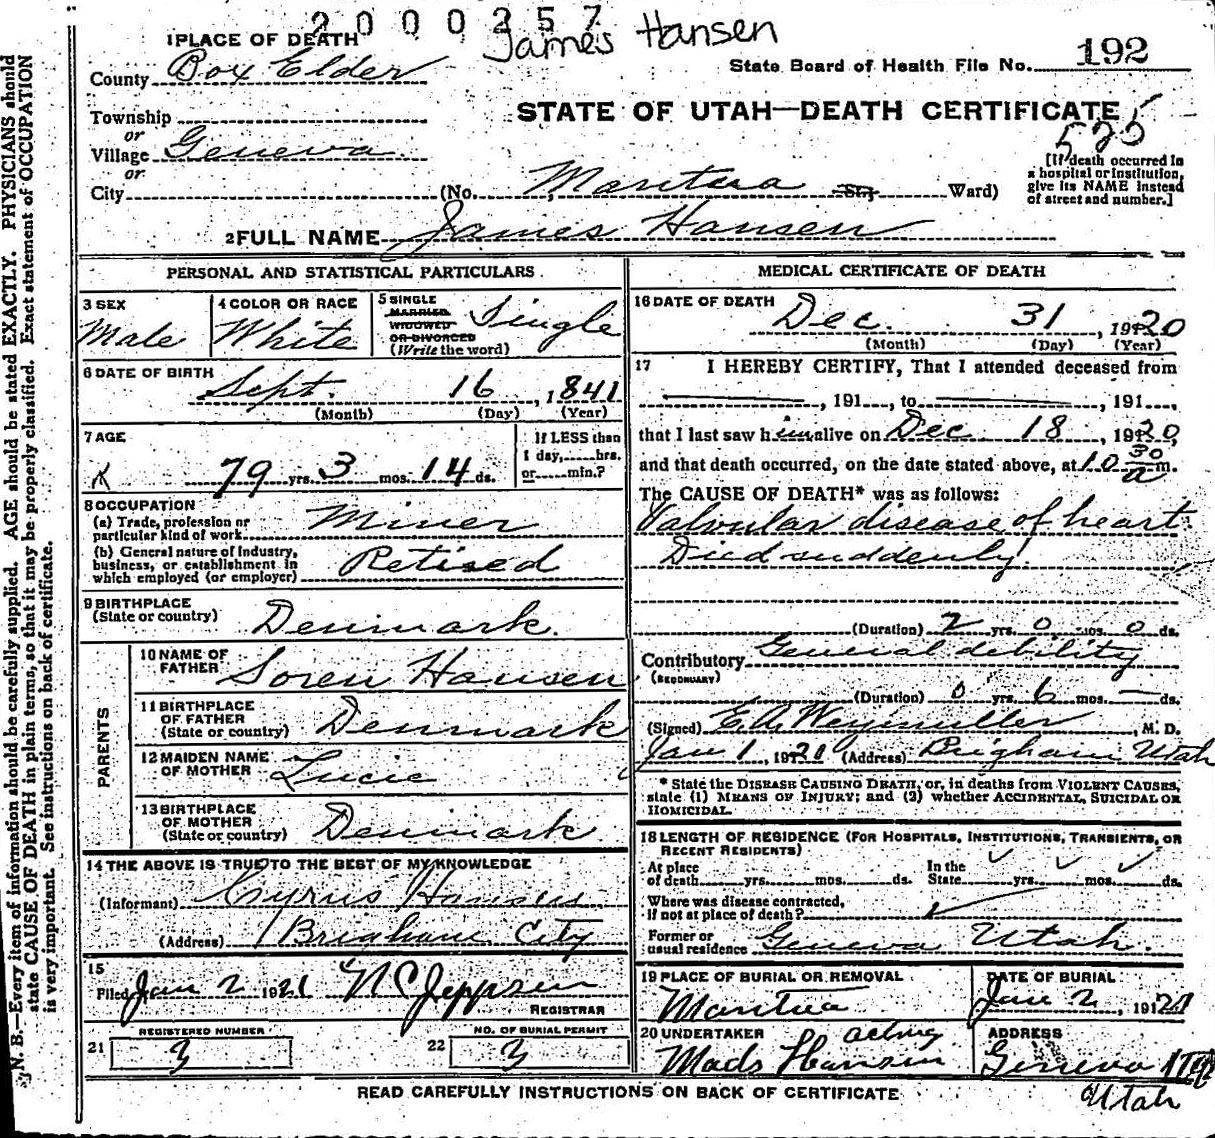 2000257
James Hansen
1 PLACE OF DEATH
County Box Elder
State Board of Health File No. 192
STATE OF UTAH—DEATH CERTIFICATE
Township
or
Village Geneva
or
City (No. Mantua St; Ward)
525
[If death occurred in
a hospital or institution,
give its NAME instead
of street and number.]
2 FULL NAME James Hansen
PERSONAL AND STATISTICAL PARTICULARS
3 SEX
Male
4 COLOR OR RACE
White
5 SINGLE
MARRIED
WIDOWED
OR DIVORCED
(Write the word)
Single
6 DATE OF BIRTH
Sept. 16, 1841
(Month) (Day) (Year)
7 AGE
79 yrs. 3 mos. 14 ds.
If LESS than
1 day, hrs.
or min.?
8 OCCUPATION
(a) Trade, profession or
particular kind of work Miner
(b) General nature of Industry,
business, or establishment in
which employed (or employer) Retired
9 BIRTHPLACE
(State or country) Denmark.
PARENTS
10 NAME OF
FATHER Soren Hansen
11 BIRTHPLACE
OF FATHER
(State or country) Denmark
12 MAIDEN NAME
OF MOTHER Lucie
13 BIRTHPLACE
OF MOTHER
(State or country) Denmark
14 THE ABOVE IS TRUE TO THE BEST OF MY KNOWLEDGE
(Informant) Cyrus Hansen
(Address) Brigham City
15
Filed Jan 2 1921 N C Jeppsen
REGISTRAR
REGISTERED NUMBER
21 3
NO. OF BURIAL PERMIT
22 3
MEDICAL CERTIFICATE OF DEATH
16 DATE OF DEATH
Dec. 31, 1920
(Month) (Day) (Year)
17 I HEREBY CERTIFY, That I attended deceased from
, 191 , to , 191 ,
that I last saw him alive on Dec 18, 1920,
and that death occurred, on the date stated above, at 10 30 a m.
The CAUSE OF DEATH* was as follows:
Valvular disease of heart.
Died suddenly!
(Duration) 2 yrs. 0 mos. 0 ds.
Contributory General debility
(SECONDARY)
(Duration) 0 yrs. 6 mos. — ds.
(Signed) E.A. Weymuller, M. D.
Jan 1, 1920 (Address) Brigham Utah
* State the DISEASE CAUSING DEATH, or, in deaths from VIOLENT CAUSES,
state (1) MEANS OF INJURY; and (2) whether ACCIDENTAL, SUICIDAL OR
HOMICIDAL.
18 LENGTH OF RESIDENCE (FOR HOSPITALS, INSTITUTIONS, TRANSIENTS, OR
RECENT RESIDENTS)
At place
of death yrs. mos. ds.
In the
State yrs. mos. ds.
Where was disease contracted,
If not at place of death?
Former or
usual residence Geneva Utah.
19 PLACE OF BURIAL OR REMOVAL
Mantua
DATE OF BURIAL
Jan 2, 1921
20 UNDERTAKER acting
Mads Hansen
ADDRESS
Geneva
Utah
READ CAREFULLY INSTRUCTIONS ON BACK OF CERTIFICATE
N. B.—Every item of information should be carefully supplied. AGE should be stated EXACTLY. PHYSICIANS should
state CAUSE OF DEATH in plain terms, so that it may be properly classified. Exact statement of OCCUPATION
is very important. See instructions on back of certificate.